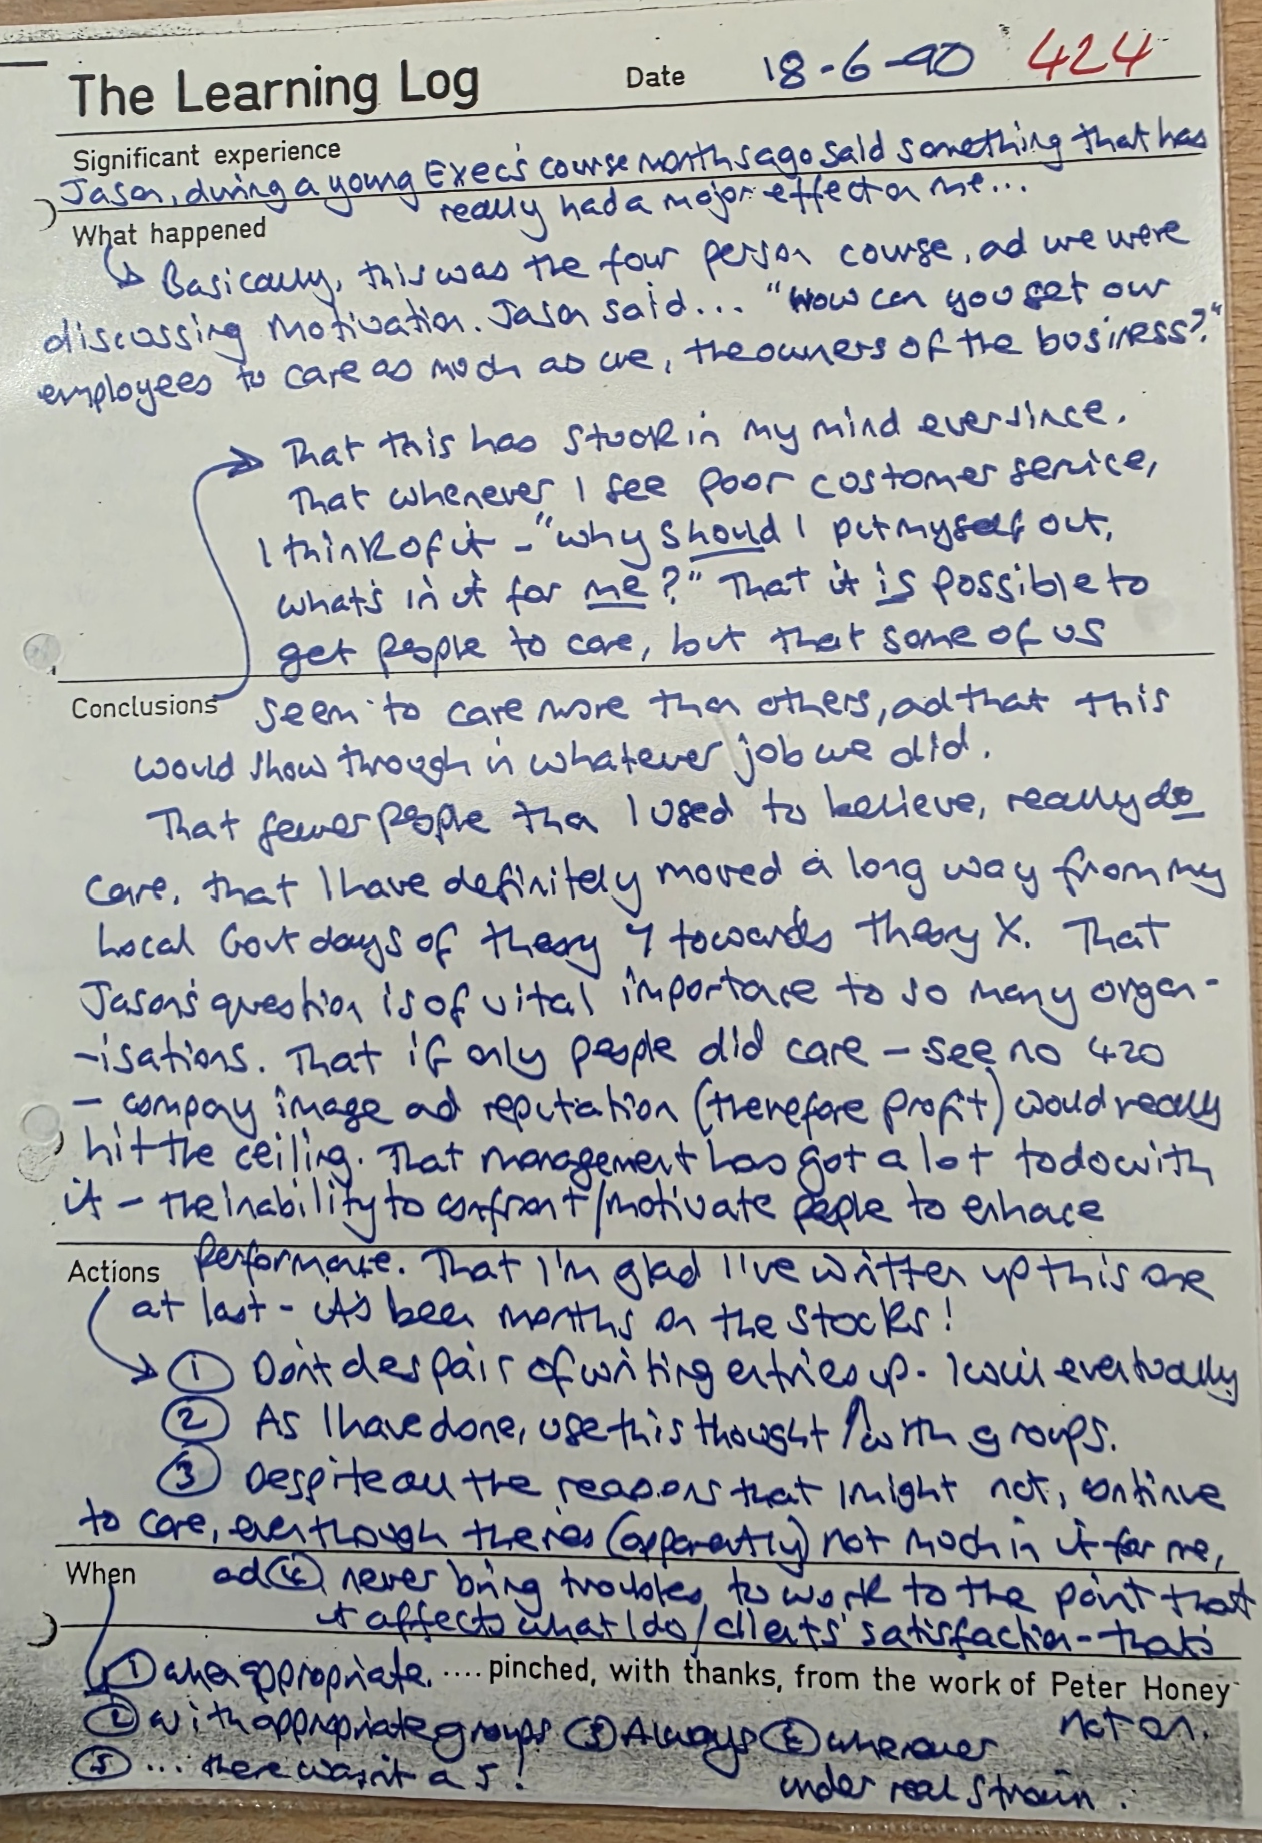 The Learning Log Date 18-6-90 424
Significant experience
Jason, during a young Exec's course months ago said something that has
really had a major effect on me...
What happened
Basically, this was the four person course, ad we were
discussing Motivation. Jason said... "How can you get our
employees to care as much as we, the owners of the business?"
That this has stuck in my mind ever since.
That whenever I see poor customer service,
I think of it - "why should I put myself out,
what's in it for me?" That it is possible to
get people to care, but that some of us
Conclusions seem to care more than others, ad that this
would show through in whatever job we did.
That fewer people than I used to believe, really do
care, that I have definitely moved a long way from my
Local Govt days of theory Y towards theory X. That
Jason's question is of vital importance to so many organ-
-isations. That if only people did care - see no 420
- company image ad reputation (therefore profit) would really
hit the ceiling. That management has got a lot to do with
it - the inability to confront/motivate people to enhace
Actions performance. That I'm glad I've written up this one
at last - it's been months on the stocks!
① Don't despair of writing entries up. I will eventually
② As I have done, use this thought with groups.
③ Despite all the reasons that I might not, continue
to care, even though there's (apparently) not much in it for me,
When ad ④ never bring troubles to work to the point that
it affects what I do/clients' satisfaction - that's
① when appropriate. .... pinched, with thanks, from the work of Peter Honey
② with appropriate groups ③ Always ④ whenever not on.
⑤ ... there wasn't a 5! under real strain.